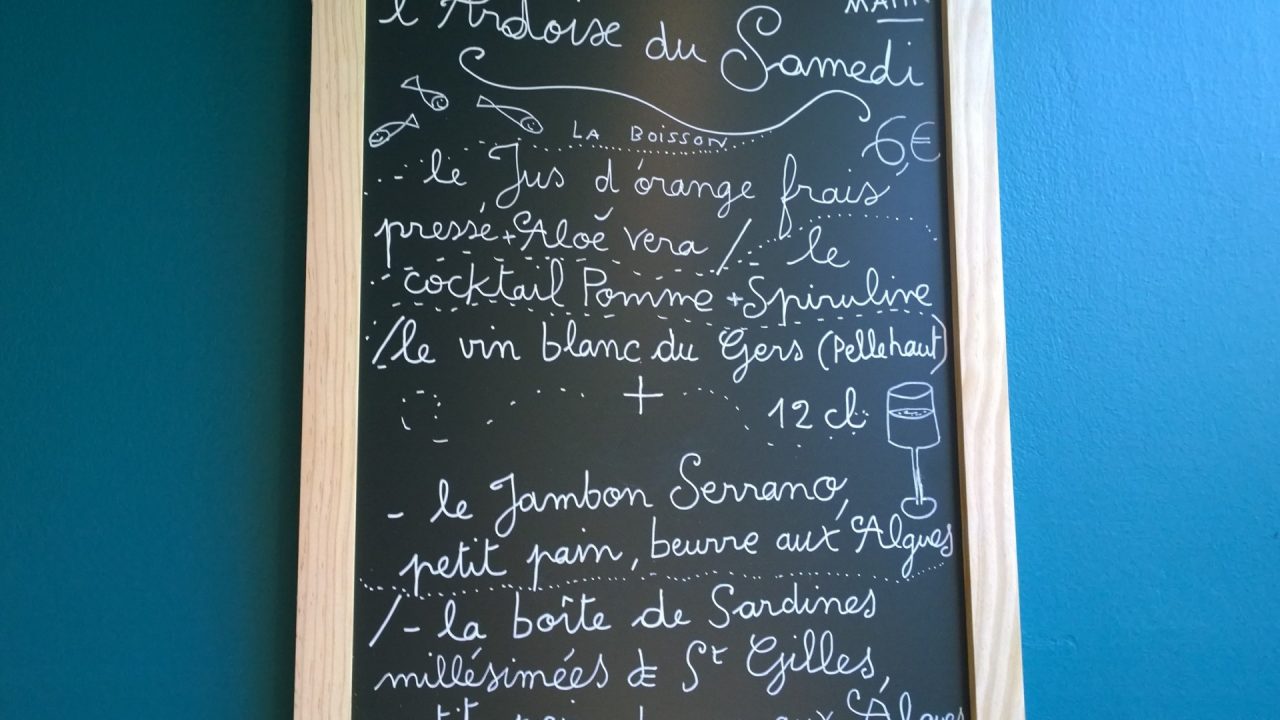 MATIN
l'Ardoise du Samedi
LA BOISSON
6€
- le Jus d'orange frais,
pressé + Aloë vera / le
cocktail Pomme + Spiruline
/ le vin blanc du Gers (Pellehaut)
+
12 cl
- le Jambon Serrano,
petit pain, beurre aux Algues
/ - la boîte de Sardines
millésimées de St Gilles,
petit pain, beurre aux Algues